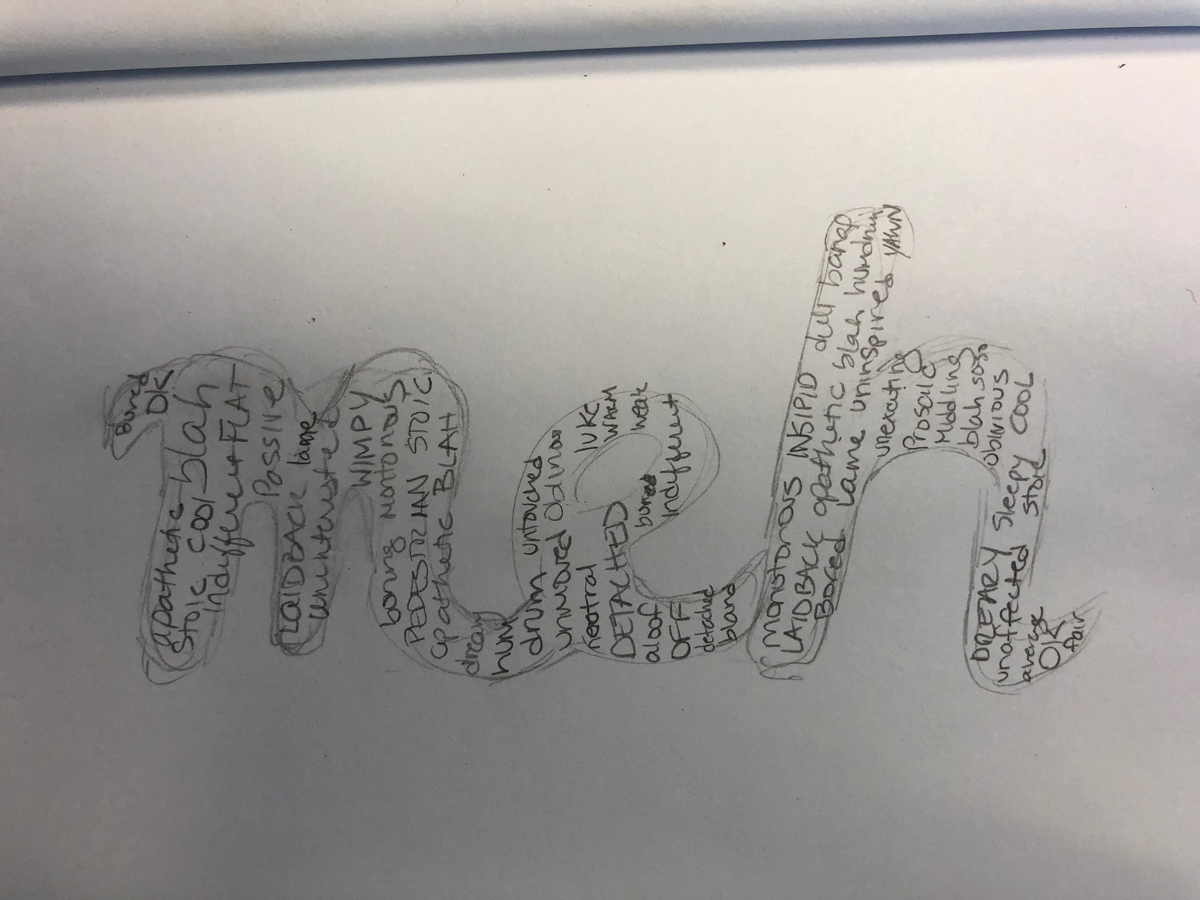 Bored
OK
apathetic blah
Stoic cool
indifferent FLAT
Passive
LAIDBACK lame
uninterested
WIMPY
boring monotonous
PEDESTRIAN STOIC
apathetic BLAH
dreary
hum
drum untouched
unmoved Odinary
neutral LUKE
WARM
DETACHED weak
aloof bored
OFF indifferent
detached
bland
monotonous INSIPID dull banal
LAIDBACK apathetic blah humdrum
Bored Lame uninspired YAWN
unexciting
Prosaic
Middling
blah soso
oblivious
DREARY Sleepy COOL
unaffected stoic
average
OK
fair